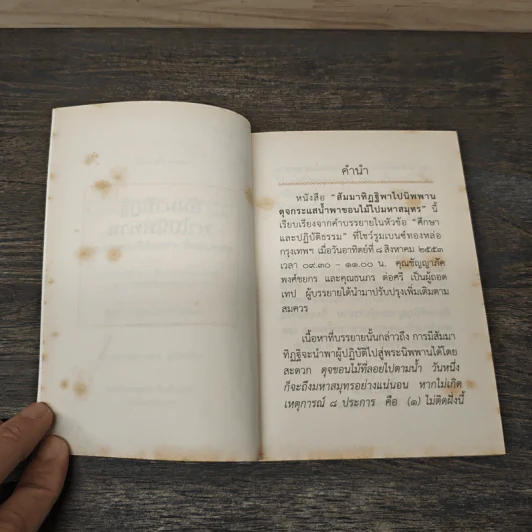 คำนำ
หนังสือ "สัมมาทิฏฐิพาไปนิพพาน
ดุจกระแสน้ำพาขอนไม้ไปมหาสมุทร" นี้
เรียบเรียงจากคำบรรยายในหัวข้อ "ศึกษา
และปฏิบัติธรรม" ที่โชว์รูมเบนซ์ทองหล่อ
กรุงเทพฯ เมื่อวันอาทิตย์ที่ ๘ สิงหาคม ๒๕๕๓
เวลา ๐๙.๓๐ – ๑๑.๐๐ น. คุณชัญญาภัค
พงศ์ชยกร และคุณธนภร ต่อศรี เป็นผู้ถอด
เทป ผู้บรรยายได้นำมาปรับปรุงเพิ่มเติมตาม
สมควร
เนื้อหาที่บรรยายนั้นกล่าวถึง การมีสัมมา
ทิฏฐิจะนำพาผู้ปฏิบัติไปสู่พระนิพพานได้โดย
สะดวก ดุจขอนไม้ที่ลอยไปตามน้ำ วันหนึ่ง
ก็จะถึงมหาสมุทรอย่างแน่นอน หากไม่เกิด
เหตุการณ์ ๘ ประการ คือ (๑) ไม่ติดฝั่งนี้